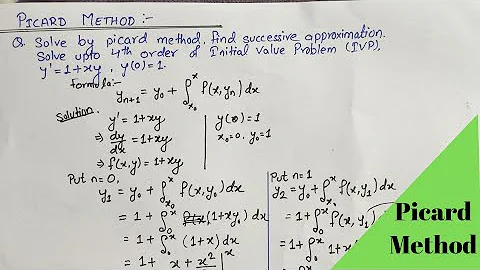 PICARD METHOD :-
Q. Solve by picard method, find successive approximation.
Solve upto 4th order of Initial Value Problem (IVP),
y' = 1+xy , y(0) = 1.
Formula:-
y_{n+1} = y_0 + ∫_{x_0}^{x} f(x, y_n) dx
Solution.
y' = 1+xy
⇒ dy/dx = 1+xy
⇒ f(x,y) = 1+xy
y(0) = 1
x_0 = 0, y_0 = 1
Put n=0,
y_1 = y_0 + ∫_{x_0}^{x} f(x, y_0) dx
= 1 + ∫_0^x (1+xy_0) dx
= 1 + ∫_0^x (1+x) dx
= 1 + x + x²/
Put n=1
y_2 = y_0 + ∫_{x_0}^{x} f(x, y_1) dx
= 1 + ∫_0^x f(x, y_1)
= 1 + ∫_0^x 1+x
Picard
Method